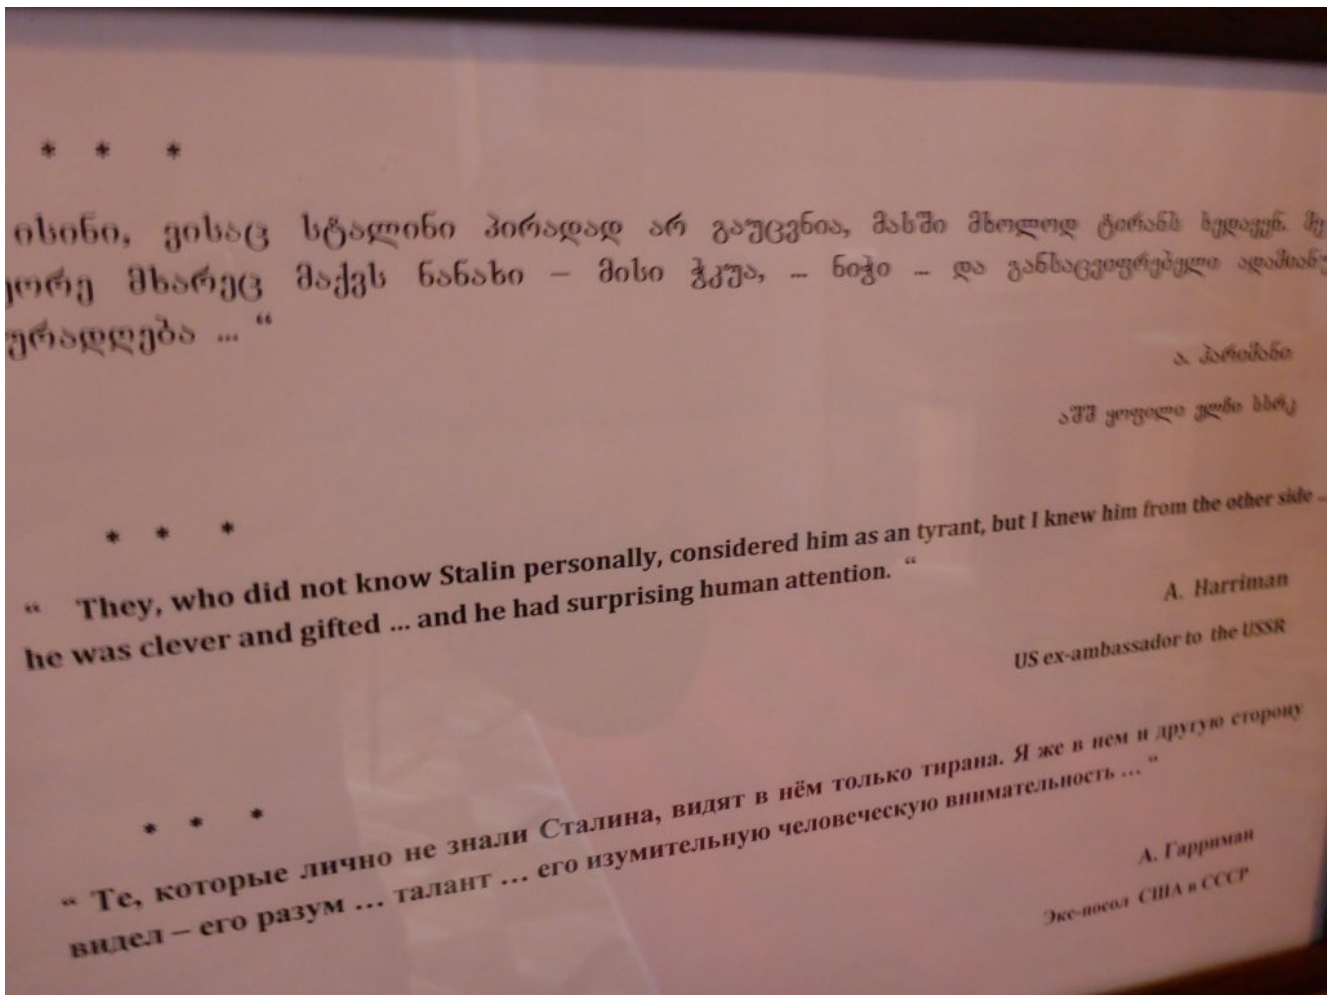 * * *
ისინი, ვისაც სტალინი პირადად არ გაუცვნია, მასში მხოლოდ ტირანს ხედავენ.
მხარეც მაქვს ნანახი – მისი ჭკუა, ... ნიჭი ... და განსაცვიფრებელი
... “
ა. ჰარიმანი
აშშ ყოფილი ელჩი სსრკ
* * *
“ They, who did not know Stalin personally, considered him as an tyrant, but I knew him from the other side ...
he was clever and gifted ... and he had surprising human attention. “
A. Harriman
US ex-ambassador to the USSR
* * *
“ Те, которые лично не знали Сталина, видят в нём только тирана. Я же в нем и другую сторону
видел – его разум ... талант ... его изумительную человеческую внимательность ... “
А. Гарриман
Экс-посол США в СССР